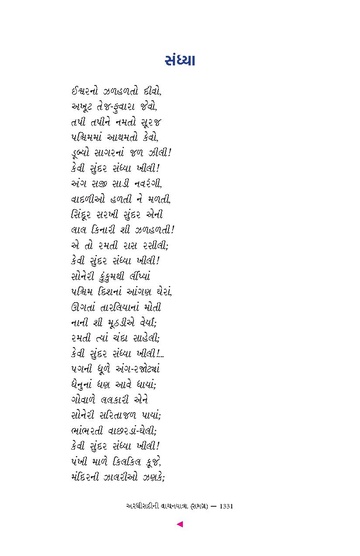 સંધ્યા
ઈશ્વરનો ઝળહળતો દીવો,
અખૂટ તેજ-ફુવારા જેવો,
તપી તપીને નમતો સૂરજ
પશ્ચિમમાં આથમતો કેવો,
ડૂબ્યો સાગરનાં જળ ઝીલી!
કેવી સુંદર સંધ્યા ખીલી!
અંગ સજી સાડી નવરંગી,
વાદળીઓ હળતી ને મળતી,
સિંદૂર સરખી સુંદર એની
લાલ કિનારી શી ઝળહળતી!
એ તો રમતી રાસ રસીલી;
કેવી સુંદર સંધ્યા ખીલી!
સોનેરી કુંકુમથી લીંપ્યાં
પશ્ચિમ દિશનાં આંગણ ઘેરાં,
ઊગતાં તારલિયાનાં મોતી
નાની શી મૂઠડીએ વેર્યાં;
રમતી ત્યાં ચંદા સાહેલી;
કેવી સુંદર સંધ્યા ખીલી!...
પગની ધૂળે અંગ-રજોટ્યાં
ધેનુનાં ધણ આવે ધાયાં;
ગોવાળે લલકારી એને
સોનેરી સરિતાજળ પાયાં;
ભાંભરતી વાછરડાં-ઘેલી;
કેવી સુંદર સંધ્યા ખીલી!
પંખી માળે કિલકિલ કૂજે,
મંદિરની ઝાલરીઓ ઝણકે;
અરધીસદીની વાચનયાત્રા (સમગ્ર) — 1331